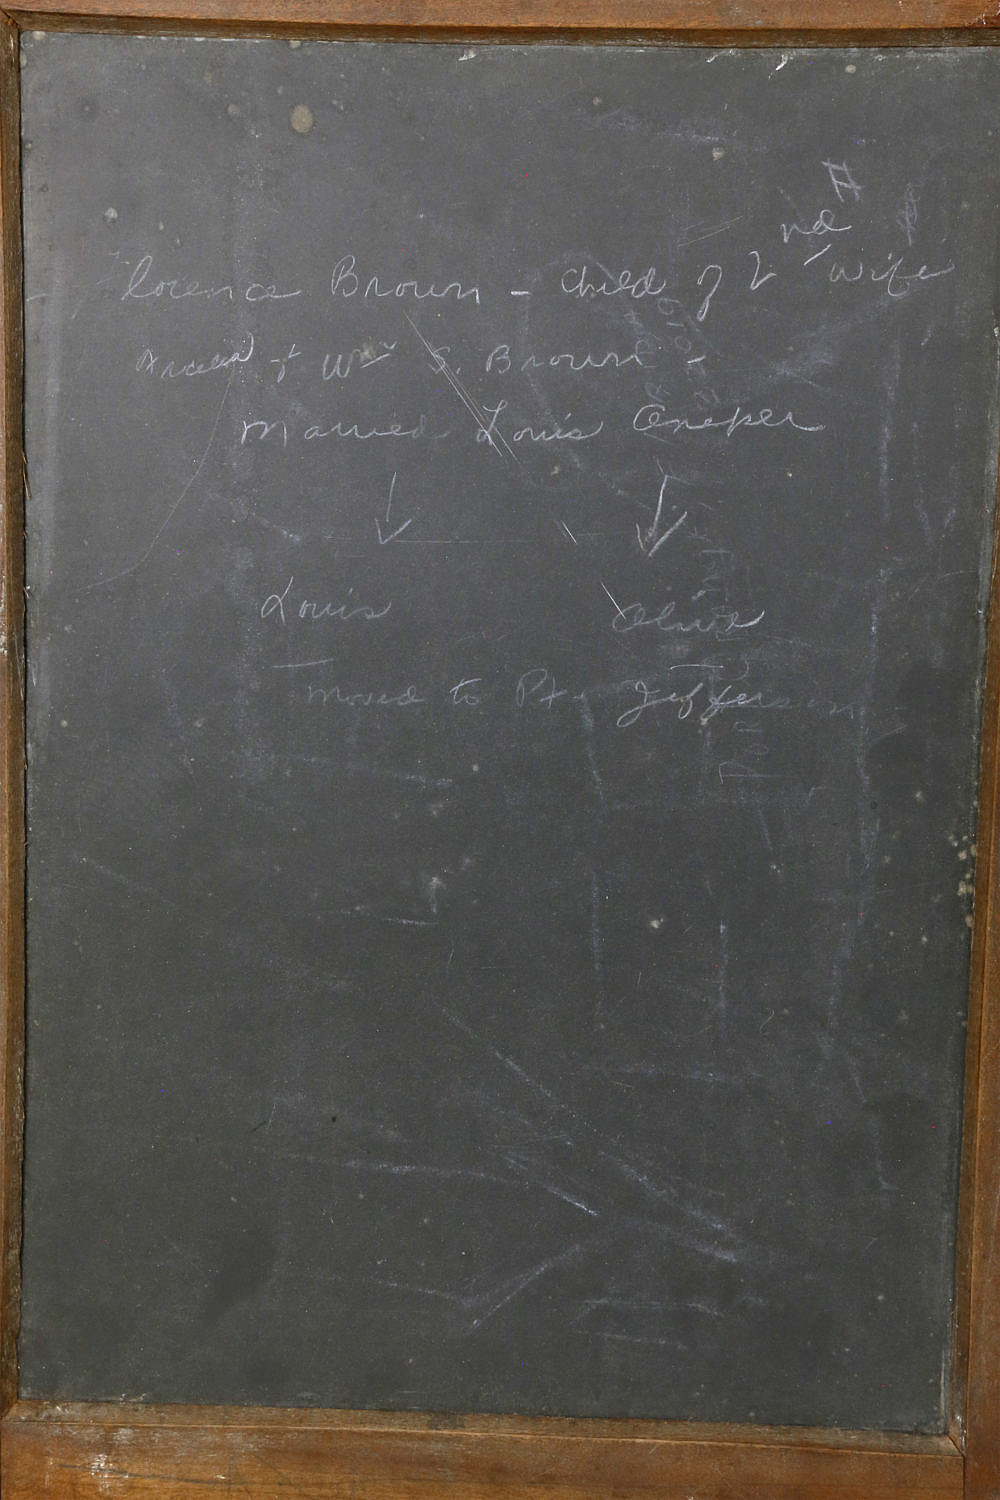 Florence Brown - child of 2nd wife
+ Wm S. Brown -
Married Louis
Louis Olive
moved to Pt. Jefferson